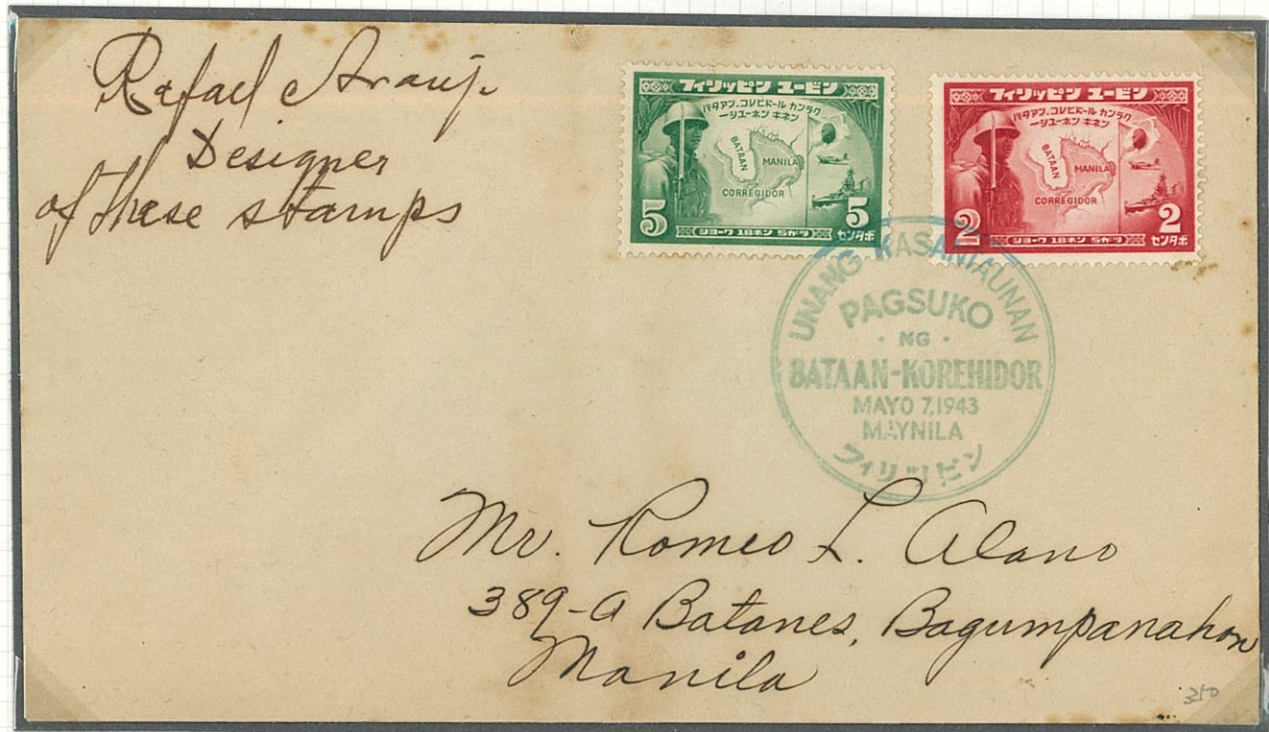 Rafael
Designer
of these stamps
フィリッピン ユービン
バタアン.コレヒドール カンラク
一シューネン キネン
BATAAN
MANILA
CORREGIDOR
5 5
ショーワ 18ネン 5ガツ センタボ
フィリッピン ユービン
バタアン.コレヒドール カンラク
一シューネン キネン
BATAAN
MANILA
CORREGIDOR
2 2
ショーワ 18ネン 5ガツ センタボ
UNANG KASANTAUNAN
PAGSUKO
· NG ·
BATAAN-KOREHIDOR
MAYO 7,1943
MAYNILA
フィリッピン
Mr. Romeo L. Alano
389-A Batanes, Bagumpanahon
Manila
350